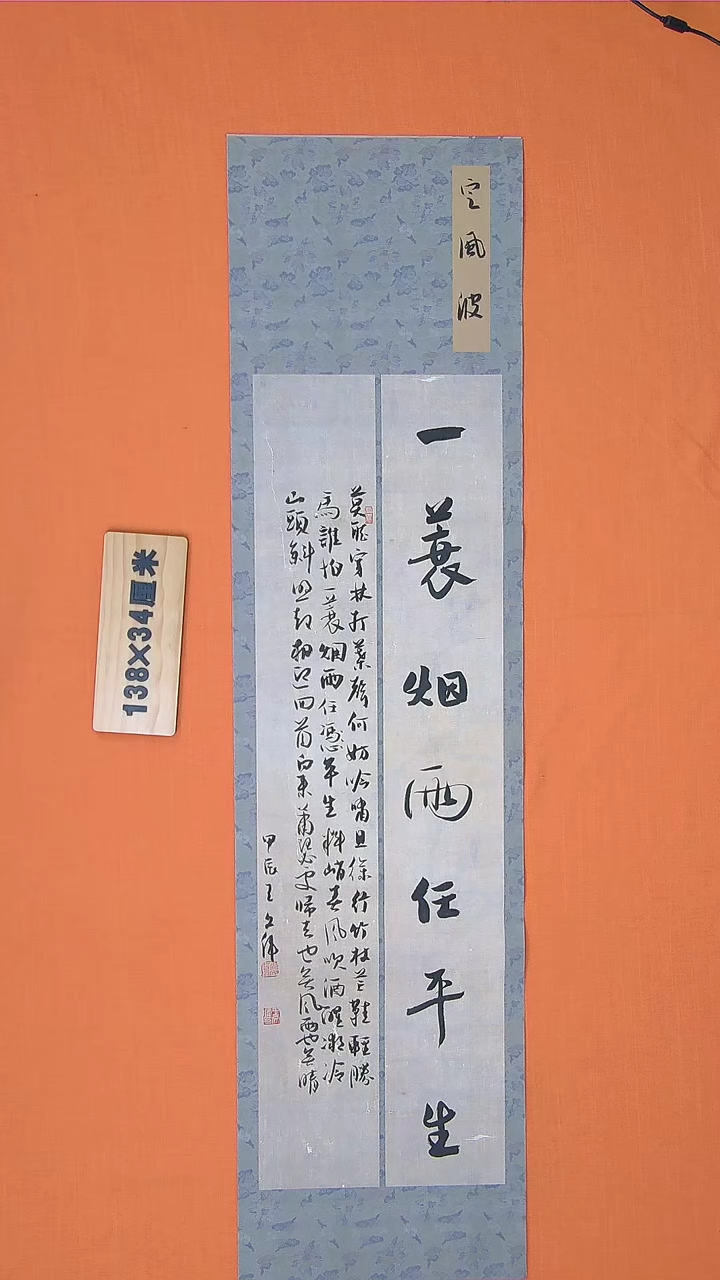 定風波
一蓑烟雨任平生
莫聽穿林打葉聲何妨吟嘯且徐行竹杖芒鞋輕勝
馬誰怕一蓑烟雨任憑平生料峭春風吹酒醒微冷
山頭斜照却相迎回首向來蕭瑟處歸去也無風雨也無晴
甲辰王文
138×34厘米